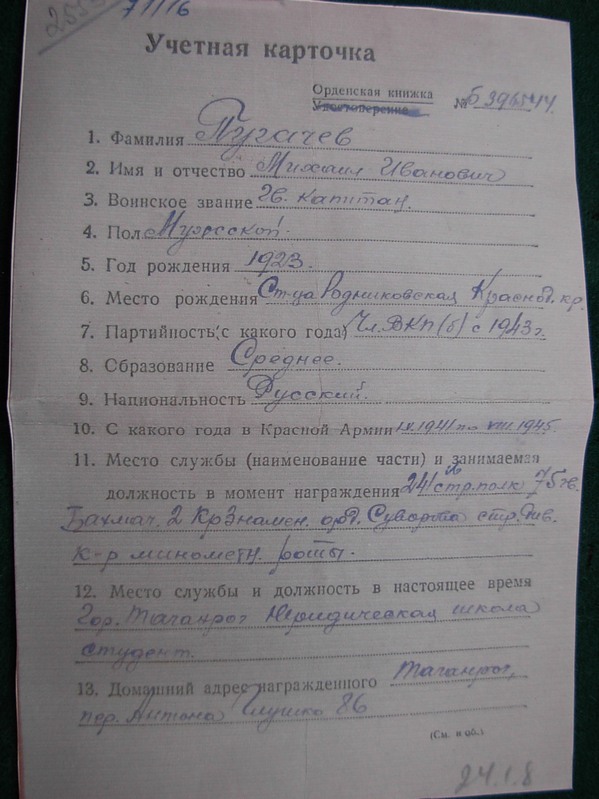 71116
Учетная карточка
Орденская книжка
Удостоверение №Б 396544
1. Фамилия Пугачев
2. Имя и отчество Михаил Иванович
3. Воинское звание Гв. капитан.
4. Пол Мужской.
5. Год рождения 1923.
6. Место рождения Ст-ца Родниковская Краснод. кр.
7. Партийность (с какого года) Чл. ВКП(б) с 1943 г.
8. Образование Среднее.
9. Национальность Русский.
10. С какого года в Красной Армии IX.1941 по VIII.1945
11. Место службы (наименование части) и занимаемая
должность в момент награждения 241 стр. полк 75 гв.
Бахмач. 2 Кр Знамен. орд. Суворова стр. див.
к-р минометн. роты.
12. Место службы и должность в настоящее время
Гор. Таганрог Юридическая школа
студент.
13. Домашний адрес награжденного Таганрог,
пер. Антона Глушко 86
(См. н об.)
24.1.8